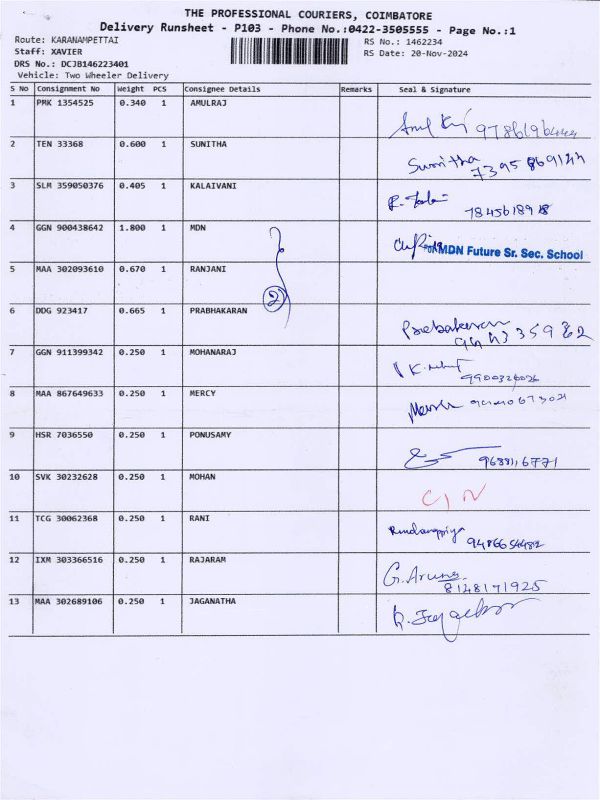 THE PROFESSIONAL COURIERS, COIMBATORE
Delivery Runsheet - P103 - Phone No.:0422-3505555 - Page No.:1
Route: KARANAMPETTAI
RS No.: 1462234
Staff: XAVIER
RS Date: 20-Nov-2024
DRS No.: DCJB146223401
Vehicle: Two Wheeler Delivery
S No Consignment No Weight PCS Consignee Details Remarks Seal & Signature
1 PMK 1354525 0.340 1 AMULRAJ
2 TEN 33368 0.600 1 SUNITHA Sunitha
3 SLM 359050376 0.405 1 KALAIVANI
4 GGN 900438642 1.800 1 MDN MDN Future Sr. Sec. School
5 MAA 302093610 0.670 1 RANJANI
2
6 DDG 923417 0.665 1 PRABHAKARAN
7 GGN 911399342 0.250 1 MOHANARAJ
8 MAA 867649633 0.250 1 MERCY
9 HSR 7036550 0.250 1 PONUSAMY
10 SVK 30232628 0.250 1 MOHAN
11 TCG 30062368 0.250 1 RANI
12 IXM 303366516 0.250 1 RAJARAM G. Aruna
8148171925
13 MAA 302689106 0.250 1 JAGANATHA